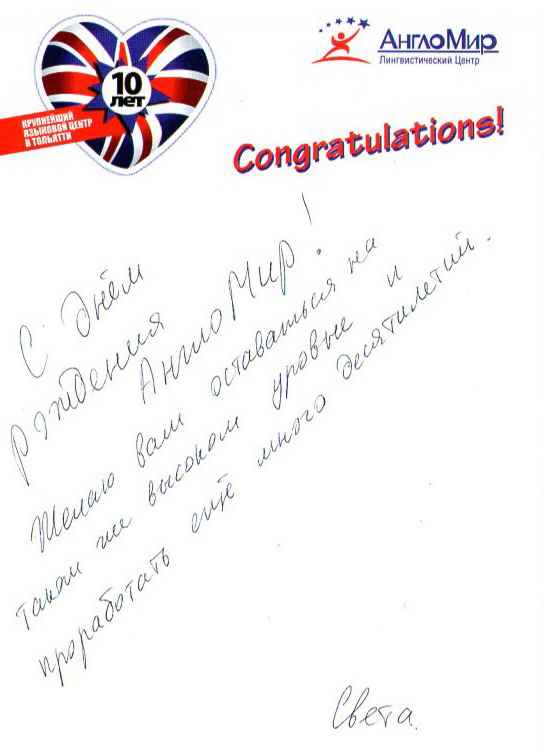 10
лет
КРУПНЕЙШИЙ
ЯЗЫКОВОЙ ЦЕНТР
В ТОЛЬЯТТИ
АнглоМир
Лингвистический Центр
Congratulations!
С Днём
рождения
АнглоМир!
Желаю вам оставаться на
таком же высоком уровне и
проработать ещё много десятилетий.
Света.